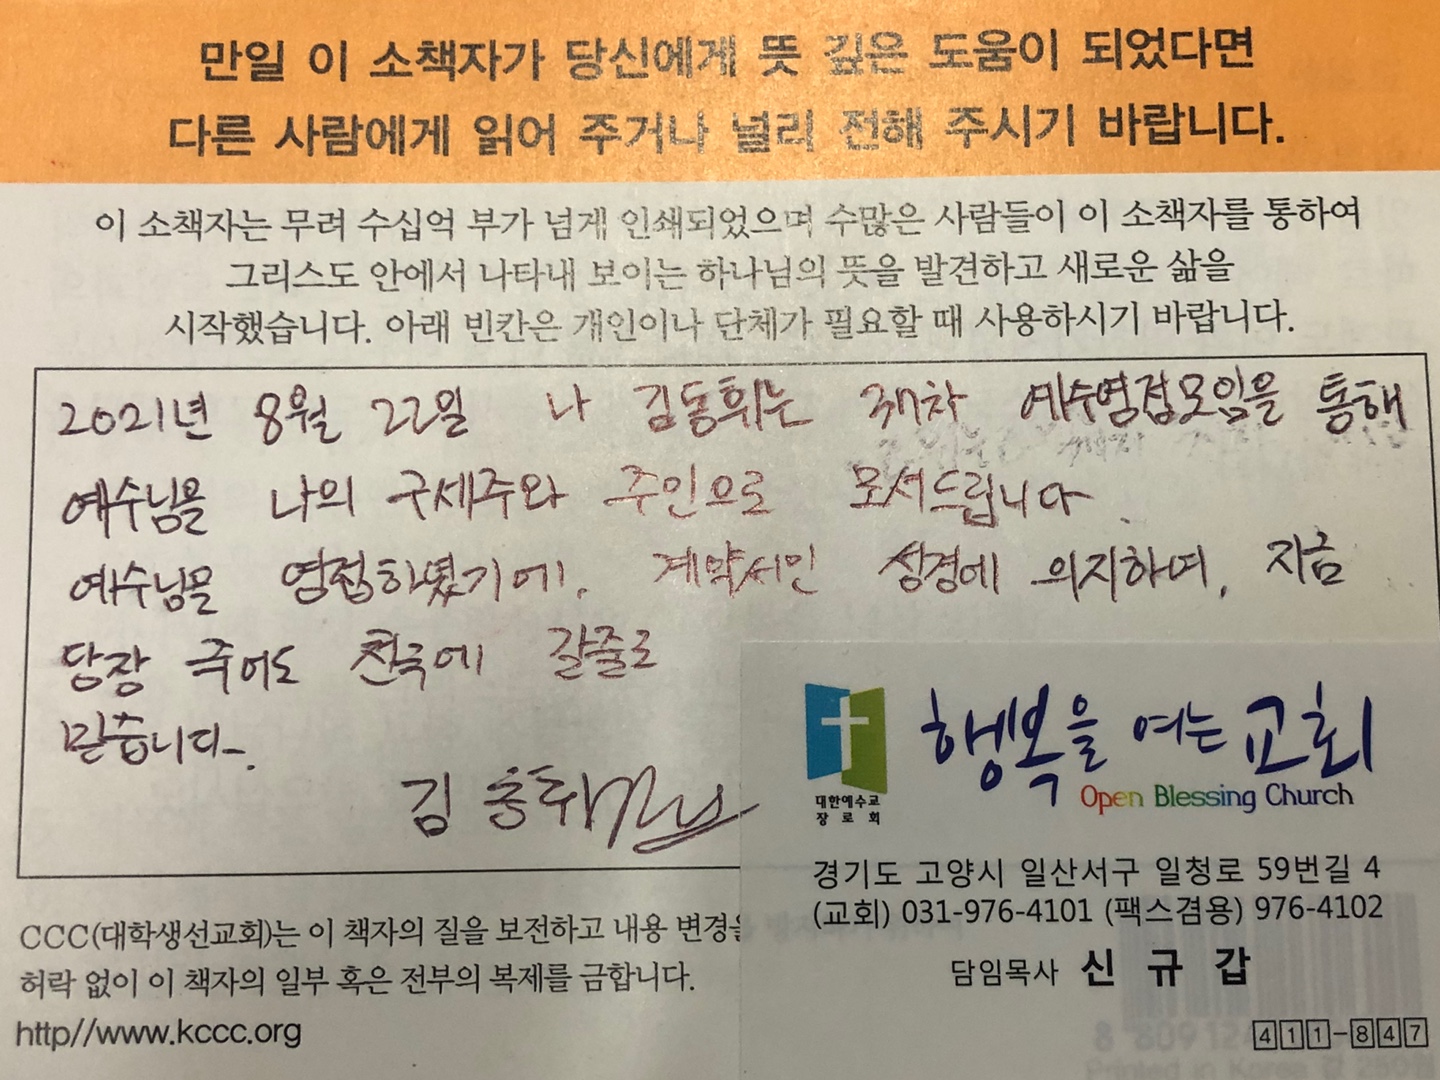 만일 이 소책자가 당신에게 뜻 깊은 도움이 되었다면
다른 사람에게 읽어 주거나 널리 전해 주시기 바랍니다.
이 소책자는 무려 수십억 부가 넘게 인쇄되었으며 수많은 사람들이 이 소책자를 통하여
그리스도 안에서 나타내 보이는 하나님의 뜻을 발견하고 새로운 삶을
시작했습니다. 아래 빈칸은 개인이나 단체가 필요할 때 사용하시기 바랍니다.
2021년 8월 22일 나 김동휘는 예수영접모임을 통해
예수님을 나의 구세주와 주인으로 모셔드립니다.
예수님을 영접하였기에, 계약서인 성경에 의지하며, 지금
당장 죽어도 천국에 갈줄로
믿습니다.
김동휘
행복을 여는 교회
Open Blessing Church
대한예수교
장로회
경기도 고양시 일산서구 일청로 59번길 4
(교회) 031-976-4101 (팩스겸용) 976-4102
담임목사 신규갑
411-847
CCC(대학생선교회)는 이 책자의 질을 보전하고 내용 변경을
허락 없이 이 책자의 일부 혹은 전부의 복제를 금합니다.
http//www.kccc.org